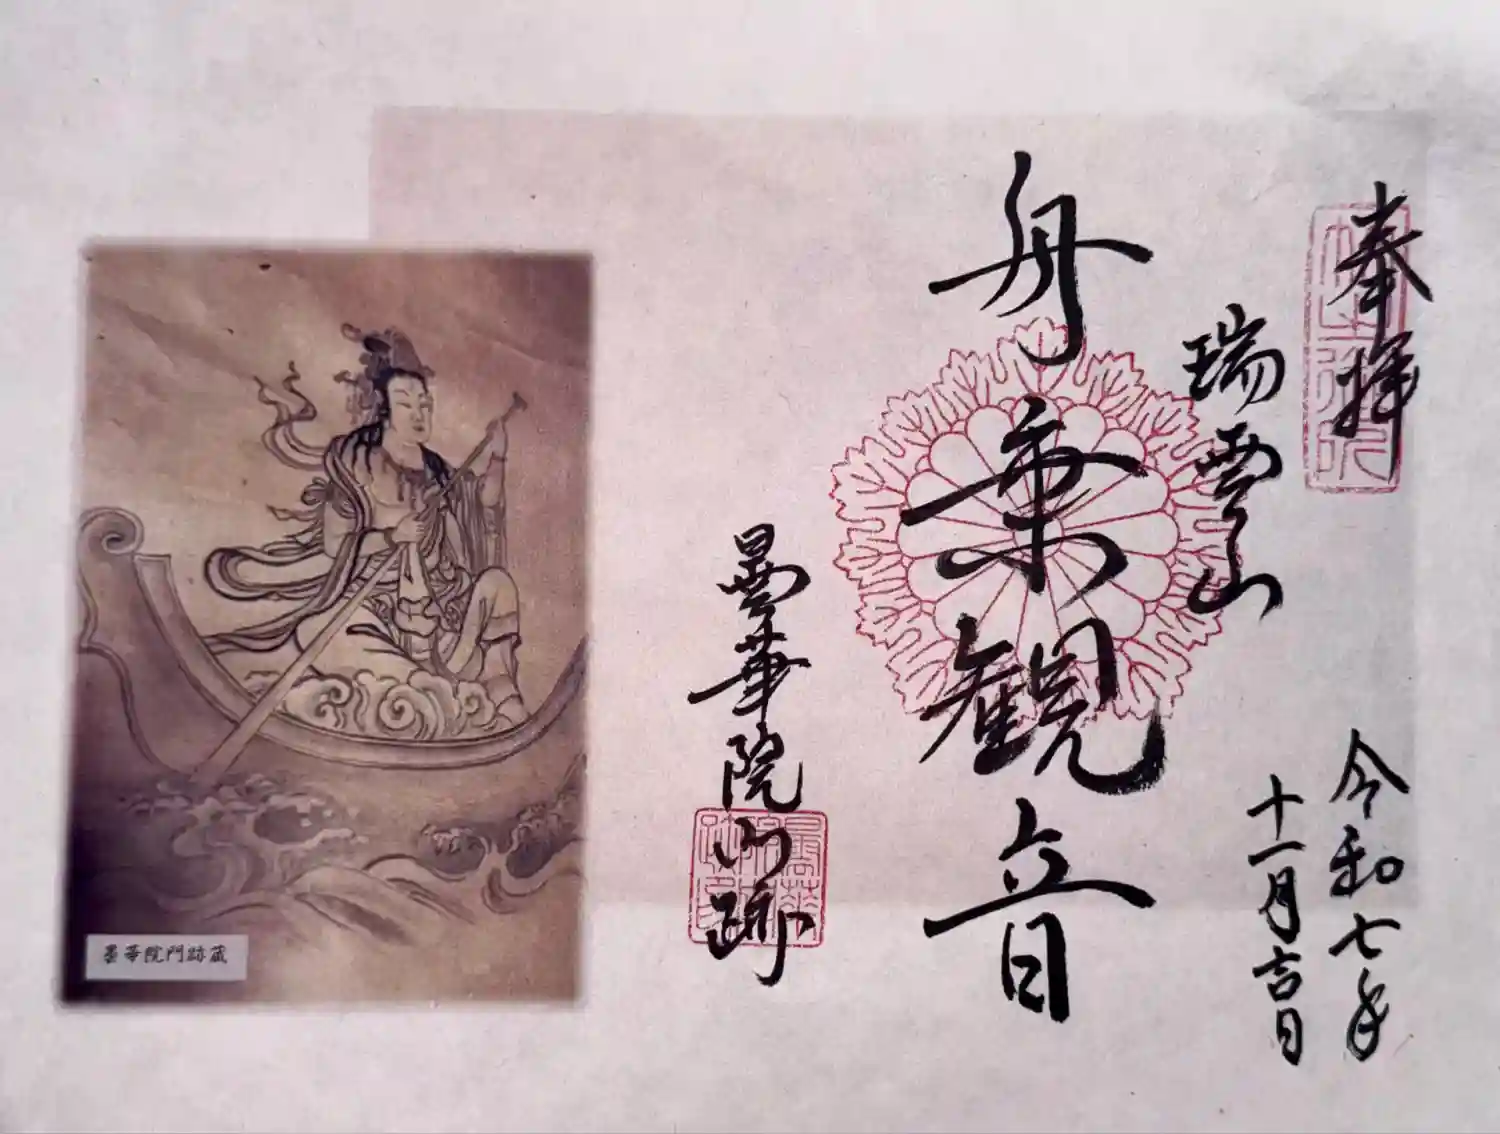 奉拝
令和七年
十一月吉日
瑞雲山
舟乗観音
曇華院門跡
曇華院門跡蔵